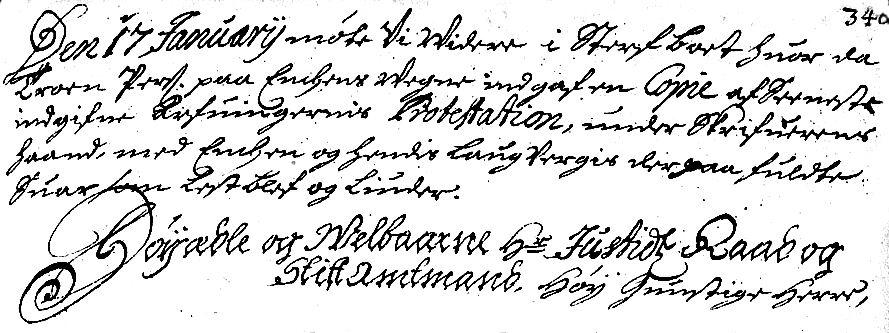 340
Den 17 January møte Vi Widere i Sterfboet huor da
Troen Pers. paa Enchens Wegne indgaf en Copie af Seeneste
indgifne Arfuingernis Protestation, under Skrifuerens
haand, med Enchen og hendis Laug Vergis der paa fuldte
Suar som Lest blef og Liuder.
Høyædle og Welbaarne Hr Justidz Raad og
Stift Amtmand. Høy Gunstige Herre,